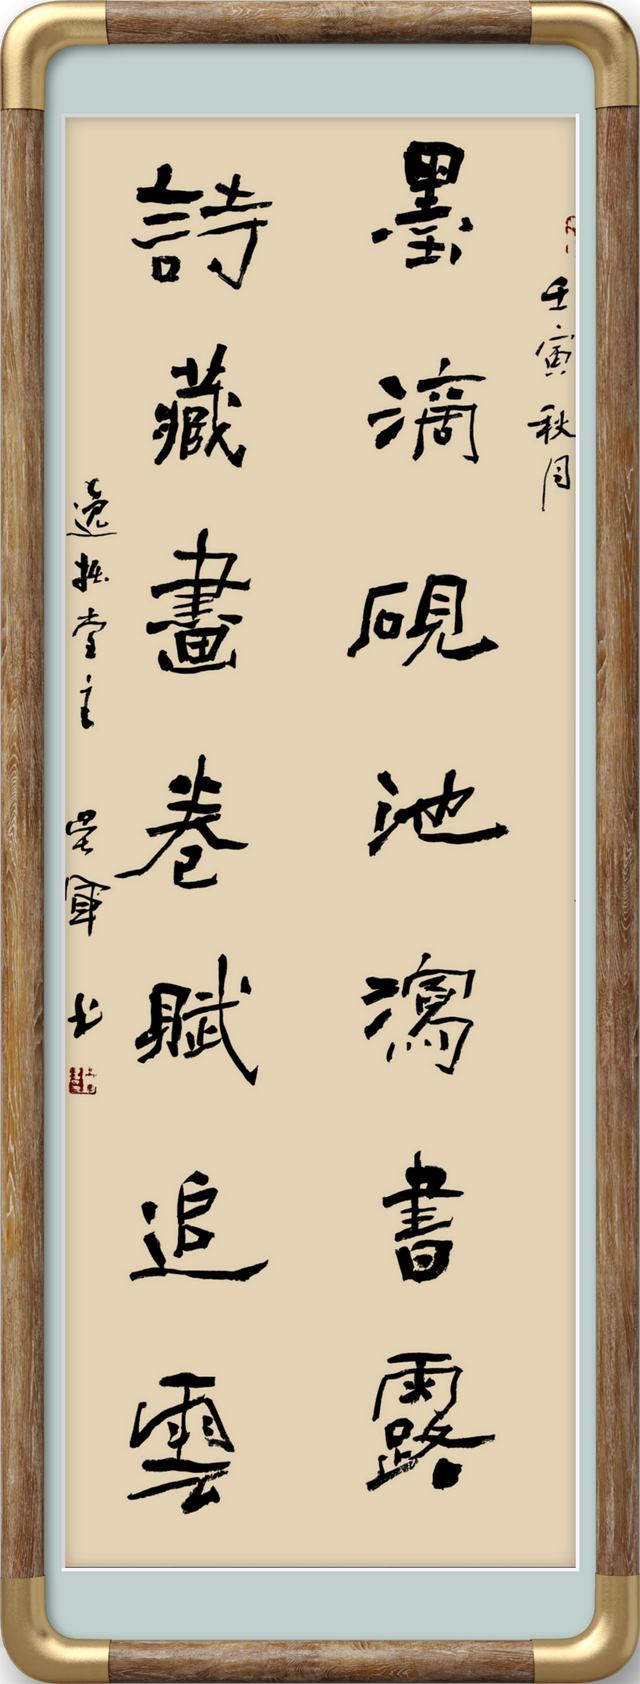 壬寅秋月
墨滴硯池瀉書露
詩藏畫卷賦追雲
逸拙堂主 吴軍